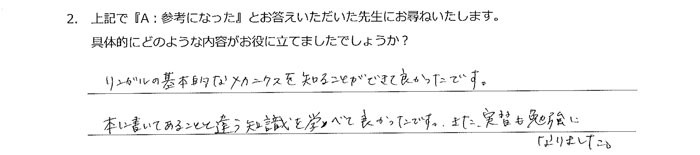 2. 上記で『A：参考になった』とお答えいただいた先生にお尋ねいたします。
具体的にどのような内容がお役に立てましたでしょうか？
リンガルの基本的なメカニクスを知ることができて良かったです。
本に書いてあることと違う知識を学べて良かったです。また、実習も勉強に
なりました。